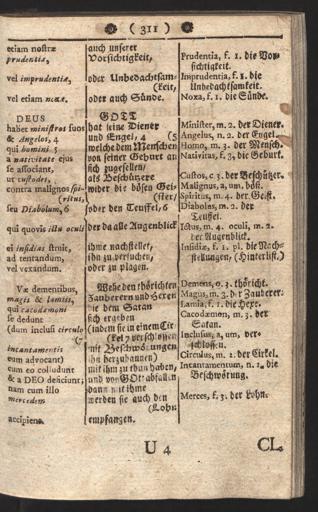 ( 311 )
etiam nostræ
prudentiæ,
vel imprudentiæ,
vel etiam noxæ,
DEUS
habet ministros suos
& Angelos, 4
qui homini 5
a nativitate ejus
se associant,
ut custodes,
contra malignos spi-
(ritus,
seu Diabolum, 6
qui quovis illu oculi
ei insidias struit,
ad tentandum,
vel vexandum.
Væ dementibus,
magis & lamiis,
qui cacodæmoni
se dedunt
(dum inclusi circulo
(7
incantamentis
eum advocant)
cum eo colludunt
& a DEO deficiunt;
nam cum illo
mercedem
accipient.
auch unserer
Vorsichtigkeit,
oder Unbedachtsam-
(keit,
oder auch Sünde.
GOTT
hat seine Diener
und Engel, 4 (5
welche dem Menschen
von seiner Geburt an
sich zugesellen,
als Beschützere
wider die bösen Gei-
(ster/
oder den Teuffel, 6
der da alle Augenblick
ihme nachstellet,
ihn zu versuchen,
oder zu plagen.
Wehe den thörichten
Zauberern und Hexen
die dem Satan
sich ergeben
(indem sie in einem Cir-
(kel 7 verschlossen
mit Beschwörungen
ihn herzubannen)
mit ihm zu thun haben,
und von Gott abfallen
dann mit ihme
werden sie auch den
(Lohn
empfangen.
Prudentia, f. 1. die Vor-
sichtigkeit.
Imprudentia, f. 1. die
Unbedachtsamkeit.
Noxa, f. 1. die Sünde.
Minister, m. 2. der Diener.
Angelus, m. 2. der Engel.
Homo, m. 3. der Mensch.
Nativitas, f. 3. die Geburt.
Custos, c 3. der Beschützer.
Malignus, a, um, böß.
Spiritus, m. 4. der Geist.
Diabolus, m. 2. der
Teuffel.
Ictus, m. 4. oculi, m. 2.
der Augenblick.
Insidiæ, f. 1. pl. die Nach-
stellungen, (Hinterlist.)
Demens, o. 3. thöricht.
Magus, m. 2. der Zauberer.
Lamia, f. 1. die Hexe.
Cacodæmon, m. 3. der
Satan.
Inclusus, a, um, ver-
schlossen.
Circulus, m. 2. der Cirkel.
Incantamentum, n. 2. die
Beschwörung.
Merces, f. 3. der Lohn.
U 4
CL.